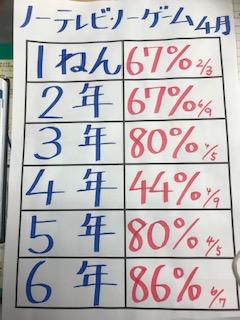 ノーテレビノーゲーム4月
1ねん 67% 2/3
2年 67% 6/9
3年 80% 4/5
4年 44% 4/9
5年 80% 4/5
6年 86% 6/7